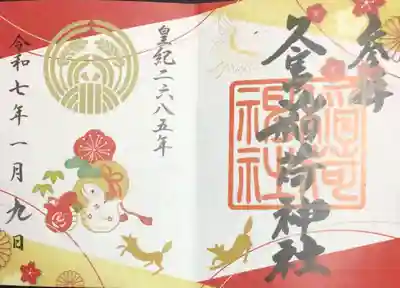 参拝
久富稲荷神社
稲荷
神社
皇紀二六八五年
令和七年一月九日